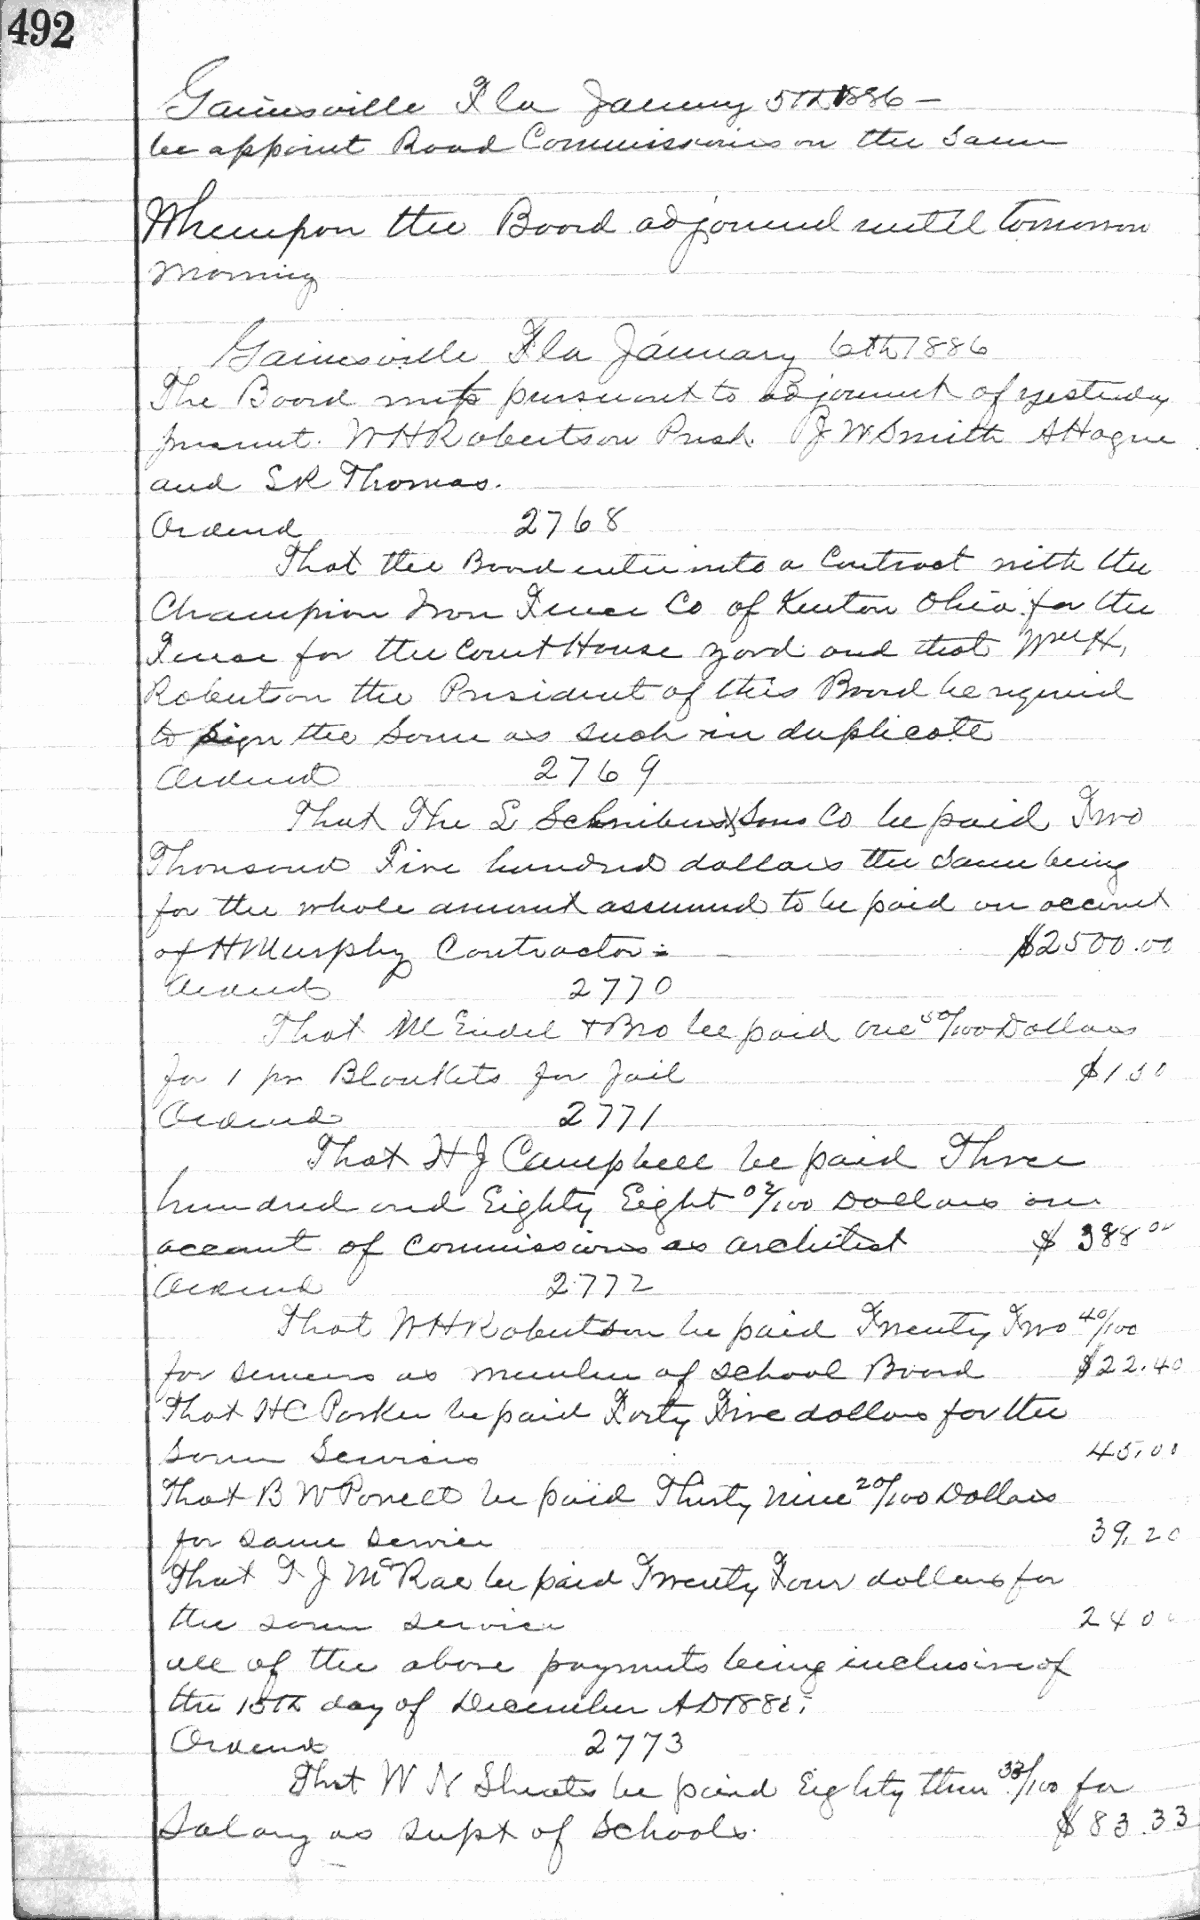 492
Gainesville Fla January 5th 1886 –
be appoint Road Commissioners on the Same
Whereupon the Board adjourned until tomorrow
morning
Gainesville Fla January 6th 1886
The Board met pursuant to adjournment of yesterday
present. W H Robertson Presd. J W Smith A Hague
and S R Thomas.
Ordered 2768
That the Board enter into a Contract with the
Champion Iron Fence Co of Kenton Ohio for the
Fence for the Court House yard and that Wm H.
Robertson the President of this Board be required
to sign the Same as such in duplicate
Ordered 2769
That The L Schreiber & Sons Co be paid Two
Thousand Five hundred dollars the Same being
for the whole amount assumed to be paid on account
of H Murphy Contractor $2500.00
Ordered 2770
That M Endel & Bro be paid One 50/100 Dollars
for 1 pr Blankets for Jail $1 50
Ordered 2771
That H J Campbell be paid Three
hundred and Eighty Eight 02/100 Dollars on
account of Commissions as architect $ 388 02
Ordered 2772
That W H Robertson be paid Twenty Two 40/100
for services as member of School Board $22.40
That H C Parker be paid Forty Five dollars for the
Same Services 45.00
That B W Powell be paid Thirty nine 20/100 Dollars
for same service 39.20
That T J McRae be paid Twenty Four dollars for
the same service 24 00
all of the above payments being inclusive of
the 15th day of December AD 1885.
Ordered 2773
That W N Sheats be paid Eighty three 33/100 for
Salary as Supt of Schools. $83.33